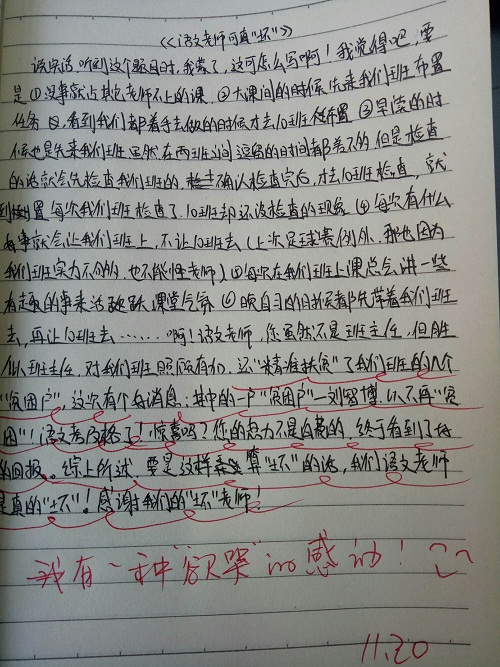 《语文老师可真"坏"》
说实话听到这个题目时,我蒙了,这可怎么写啊!我觉得吧,要
是①没事就占其它老师不上的课。②大课间的时候先来我们班布置
任务,看到我们都着手去做的时候才去10班布置③早读的时
候也是先来我们班虽然在两班之间逗留的时间都差不多但是检查
的话就会先检查我们班的,确认检查完后,才去10班检查,就
每次我们班检查了10班却还没检查的现象④每次有什么
事就会让我们班上,不让10班去(上次足球赛例外,那也因为
我们班实力不够,也不能怪老师)⑤每次在我们班上课总会讲一些
有趣的事来活跃课堂气氛⑥晚自习的时候都先带着我们班
去,再让10班去……啊!语文老师,您虽然不是班主任,但胜
似班主任,对我们班照顾有加,还"精准扶贫"了我们班的几个
"贫困户",这次有个好消息:其中的一户"贫困户"—刘智博,以不再"贫
困"!语文考及格了!惊喜吗?您的努力不是白费的,终于看到了好
的回报。综上所述,要是这样算"坏"的话,我们语文老师
是真的"坏"!感谢我们的"坏"老师!
我有一种"欲哭"的感动!
11.20